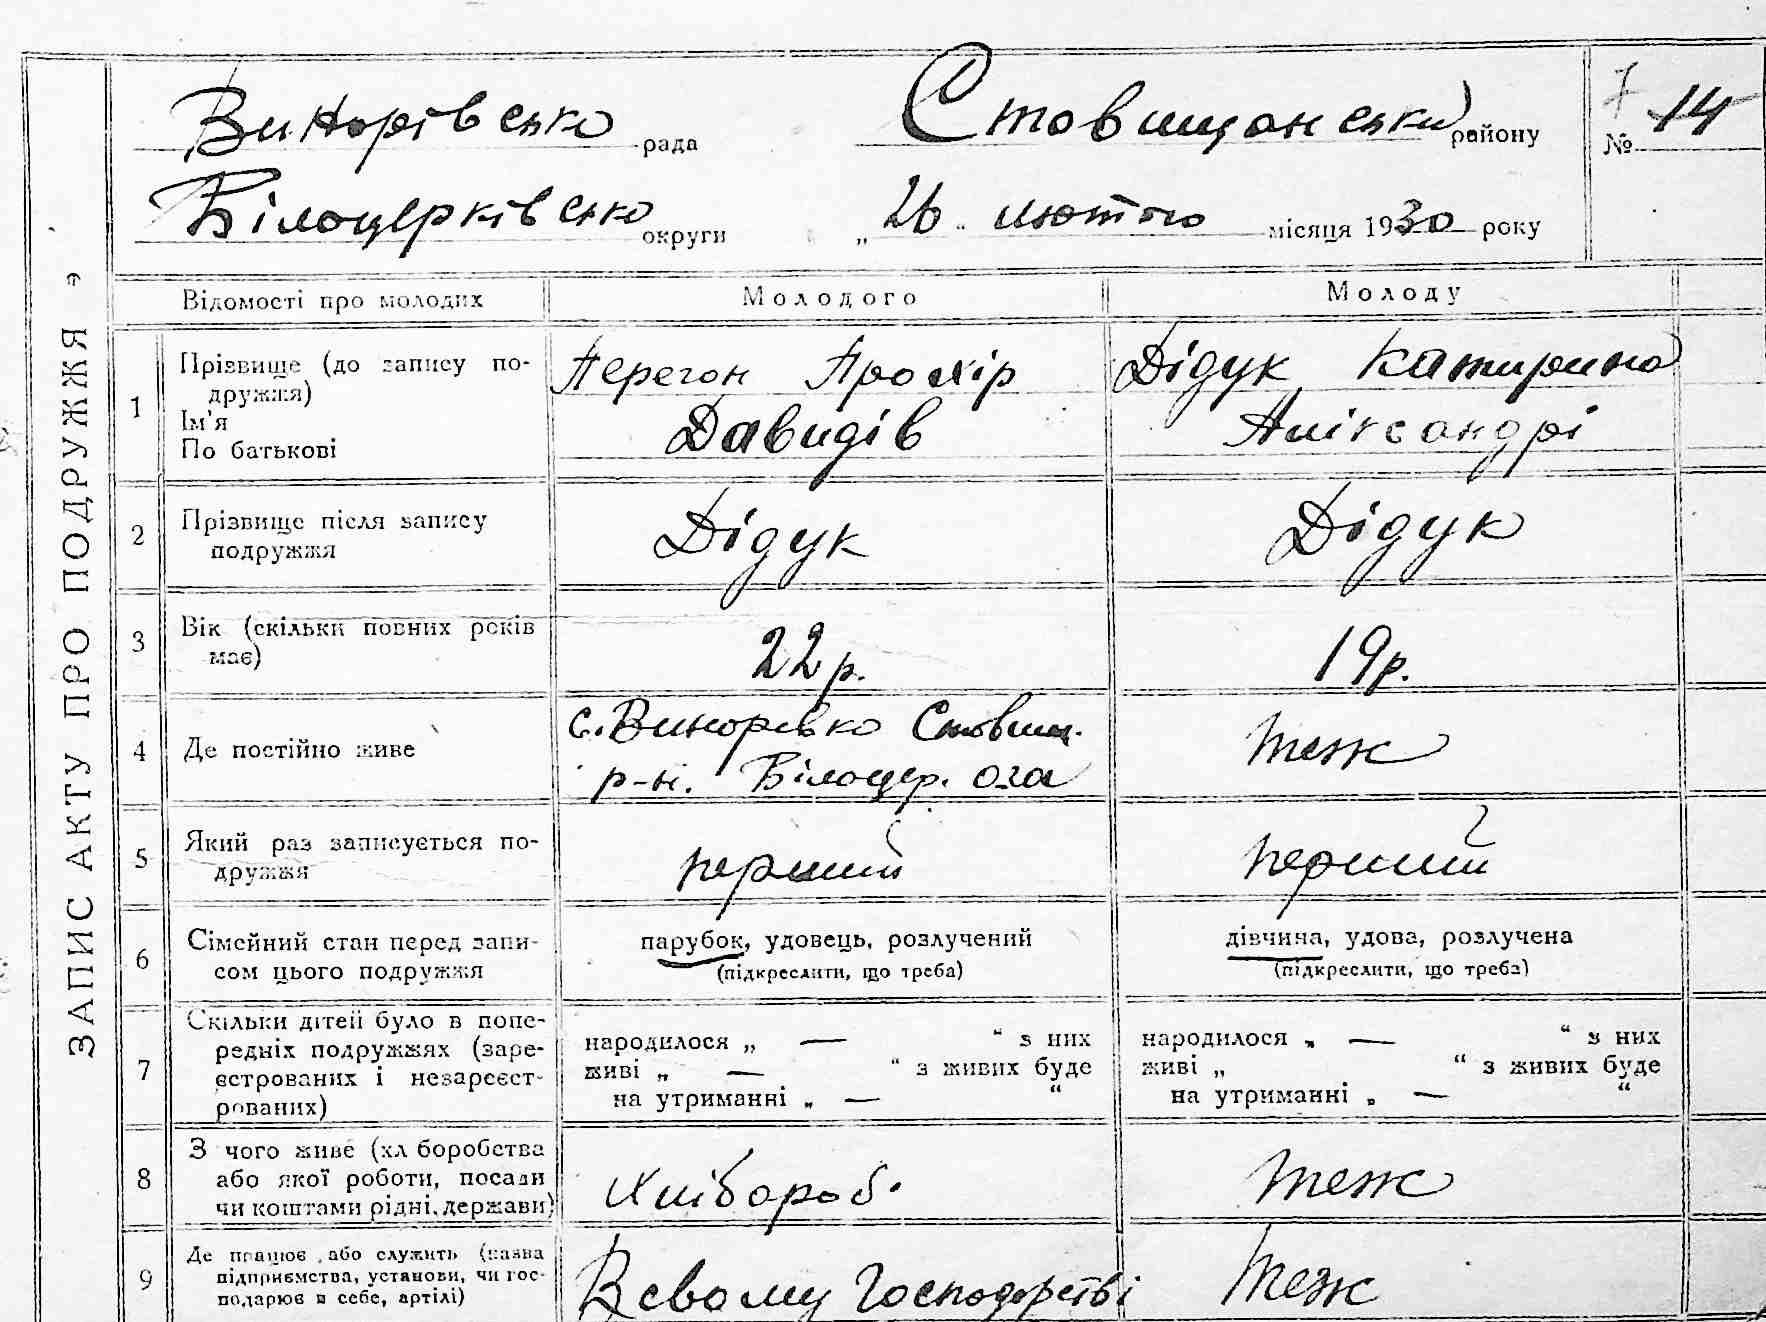 ЗАПИС АКТУ ПРО ПОДРУЖЖЯ
Винорівсько рада Ставищанський району № 14
7
Білоцерківсько округи „26“ лютого місяця 1930 року
Відомості про молодих Молодого Молоду
1 Прізвище (до запису по-
дружжя)
Ім'я
По батькові
Перегон Прохір
Давидів
Дідук Катирина
Аліксандрі
2 Прізвище після запису
подружжя
Дідук
Дідук
3 Вік (скільки повних років
має)
22 р.
19 р.
4 Де постійно живе
с. Винорівко Ставищ.
р-н. Білоцер. ога
теж
5 Який раз записується по-
дружжя
перший
перший
6 Сімейний стан перед запи-
сом цього подружжя
парубок, удовець, розлучений
(підкреслити, що треба)
дівчина, удова, розлучена
(підкреслити, що треба)
7 Скільки дітей було в попе-
редніх подружжях (заре-
єстрованих і незареєст-
рованих)
народилося „ — “ з них
живі „ — “ з живих буде
на утриманні „ — “
народилося „ — “ з них
живі „ “ з живих буде
на утриманні „ — “
8 З чого живе (хл боробства
або якої роботи, посади
чи коштами рідні, держави)
Хлібороб.
теж
9 Де працює або служить (назва
підприємства, установи, чи гос-
подарює в себе, артілі)
Всвому Господорстві
теж